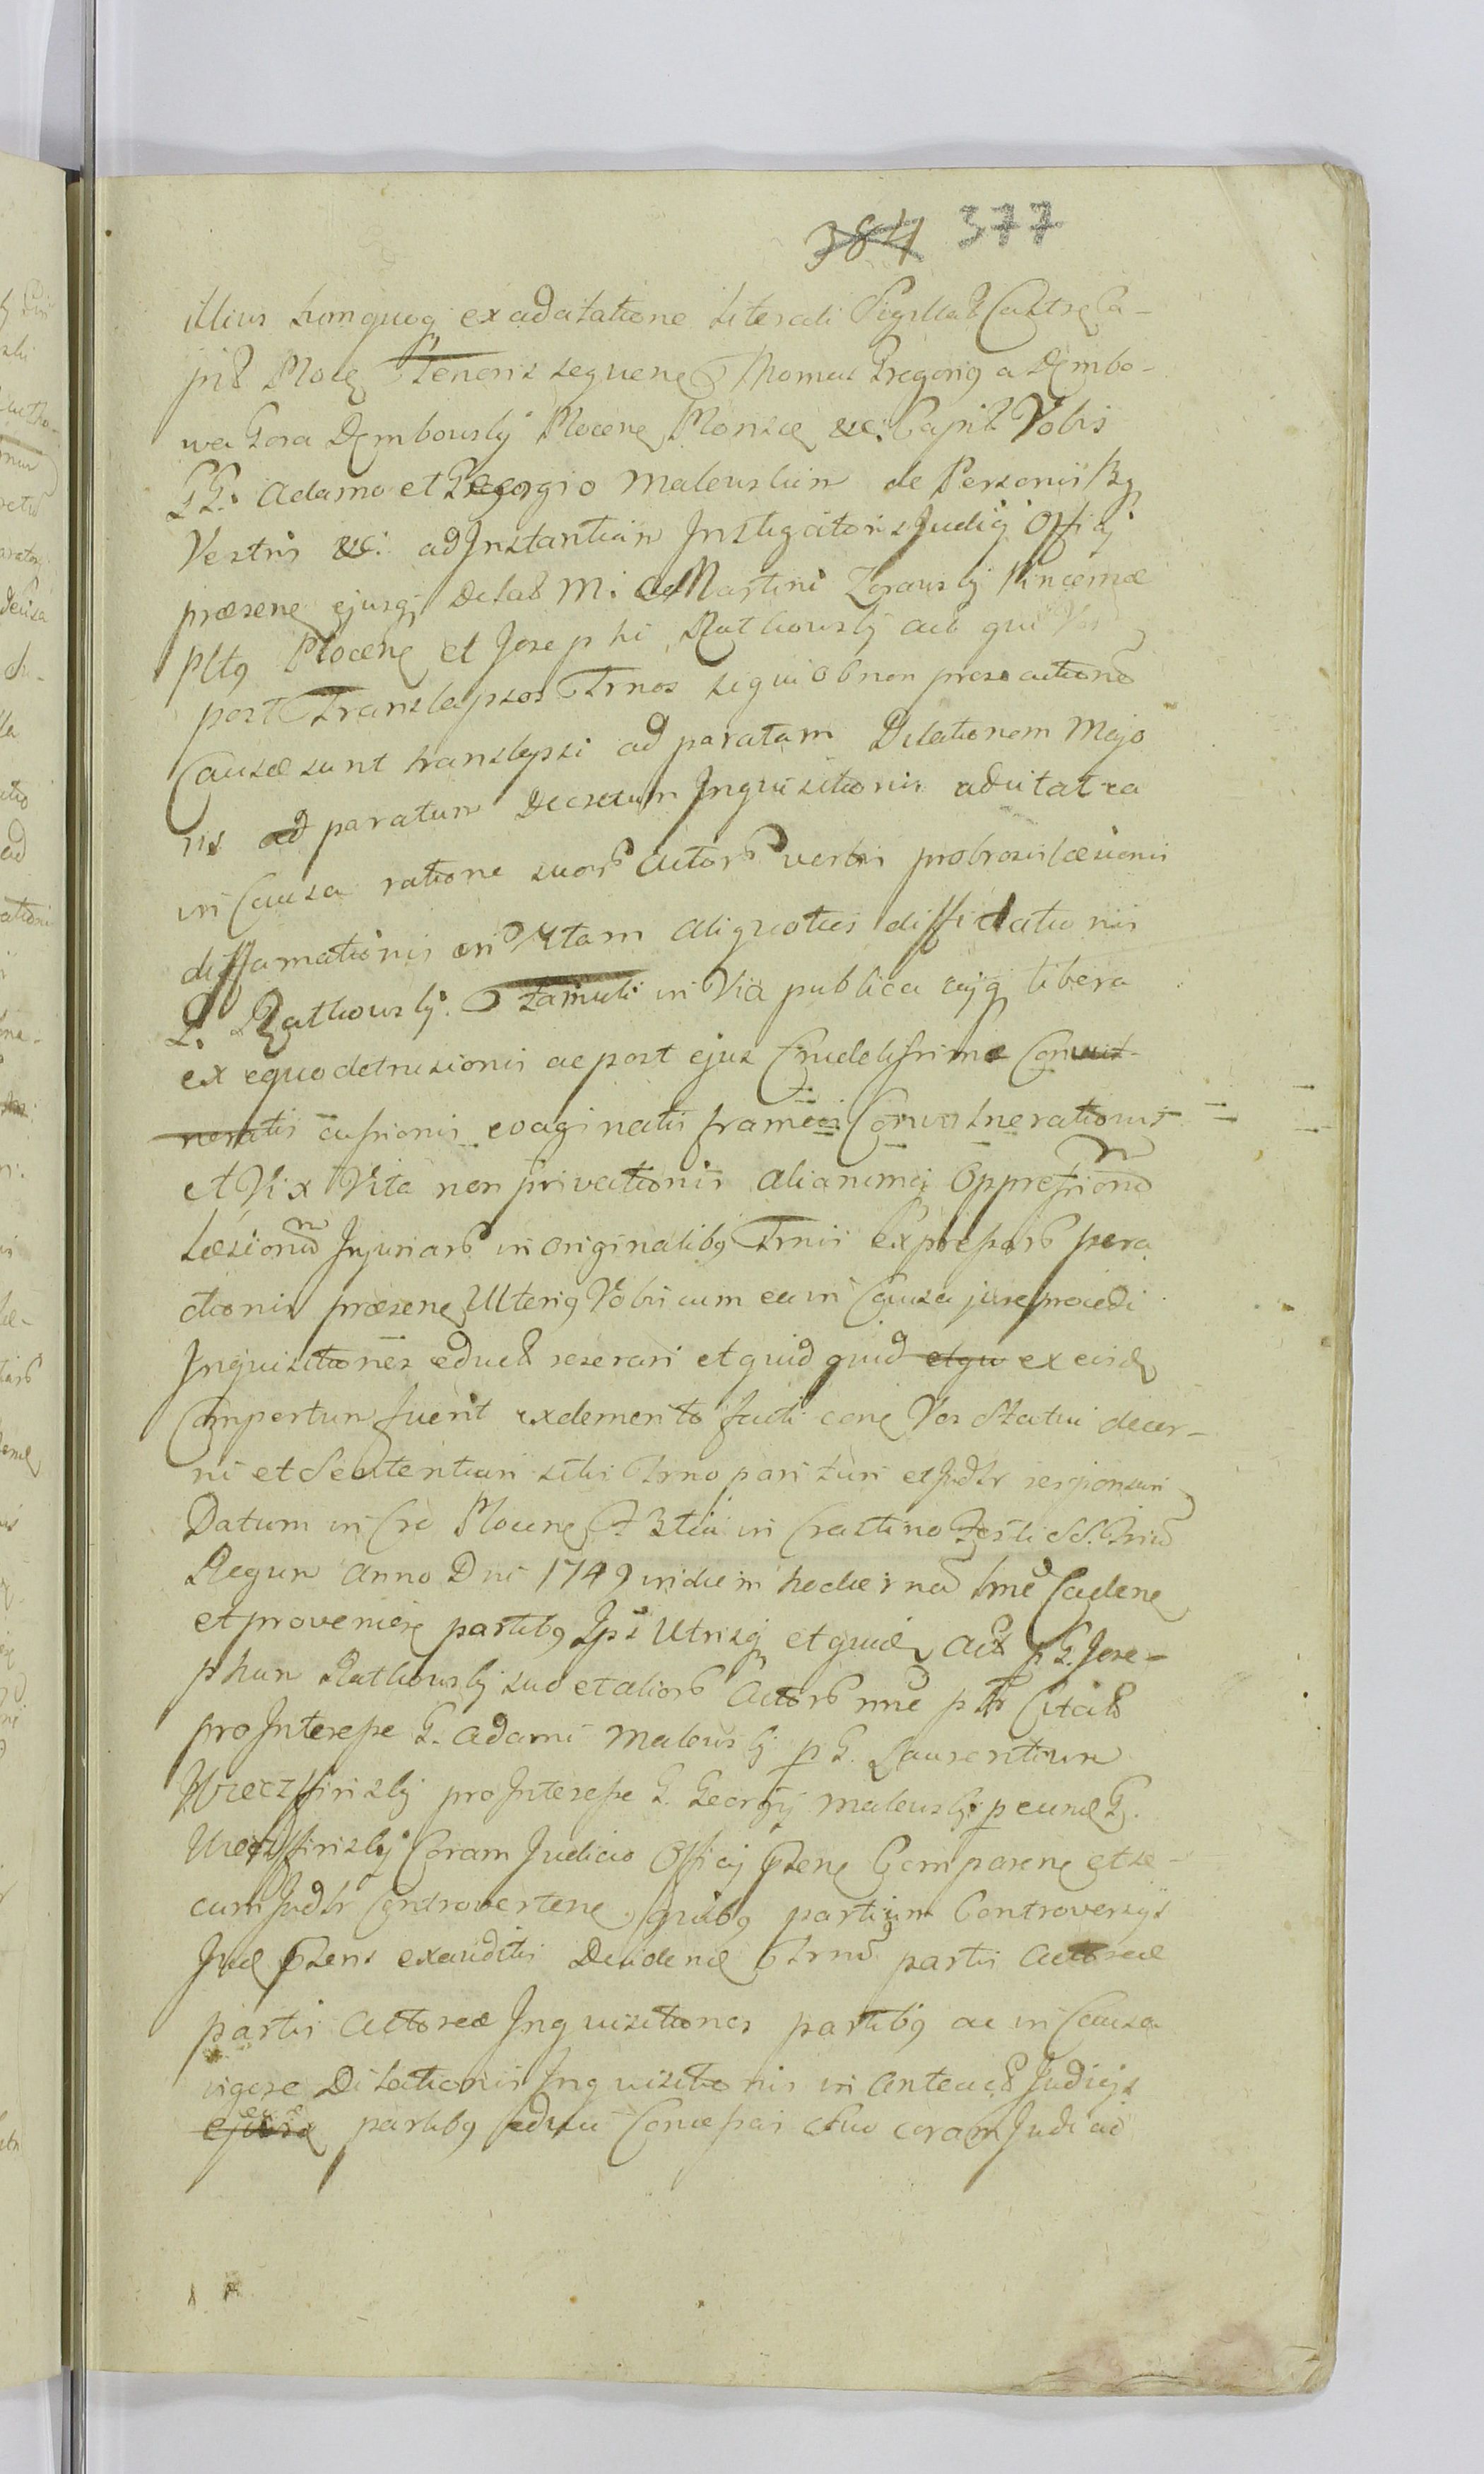 384 377
illius tumquoq exadcitatione Literali Sigillat Castr Ca-
pit Ploce Tenoris sequene Thomas Gregorig a Dembo-
wa Gora Dembowskj Plocene Plonsce &c. Capit Vobis
GG. Adamo et Georgio Maleuskim de Personis Bg
Vestris &c. ad Instantiam Instigatoris Judicij Officij
præsene ejusqj Delat M. Martini Zorawskj Pincernæ
Pltg Plocene et Josephi Rutkowskj ad qui Vos
post Translapsos Trnos sequi ob non prosecutione
Causæ sunt translapsi ad paratam Dilationem Majo
ris ad paratum Decretum Inquisitionis adcitat ea
in Causa ratione suor Actor verbis probrosis læsionis
diffamationis in Vitam aliquoties diffidationis
G. Rutkowskj. Famuli in Via publica cujqj libera
ex equo detrusionis ac post ejus Crudelissime Convul-
neratis cæsionis evaginatis frameis Convulnerationis
et Vix Vita non privationis aliarumqj Oppressionu
Læsionu Injuriar in originalibg Trnis Expressar pera
ctionis præsene Ulterig Vobis cum ea in Causa jure procedi
Inquisitiones educt reserari et quid quid etqu ex eisd
Compertum fuerit exdemerito facti cone Vos Statui decer-
ni et Sententiari sitis Trno parituri et Judr responsuri
Datum in Cro Plocene F 3tia in Crastino Festi SS. Triu
Regum Anno Dni 1749 in diem hodierna Ime Cadene
et provenien partibg Ips Utrisqj et quid Act p G. Jose-
phum Rutkowskj suo et alior Actor nne ptr Citat
pro Interesse G. Adami Maleuskj p G. Laurentium
Wreczffinskj pro Interesse G. Georgij Maleuskj p eund G.
Wreczffinskj Coram Judicio Officij Psene Comparene et se-
cum Judr Controvertene, quibg partium Controversijs
Jud Psens exauditis Decidend Trnu partis Actoreæ
partis Actoreæ Inquisitiones partibg ac in Causa
vigore Dilationis Inquisitionis in Anteact Judicijs
partibg educi Concessas actuo coram Judicio